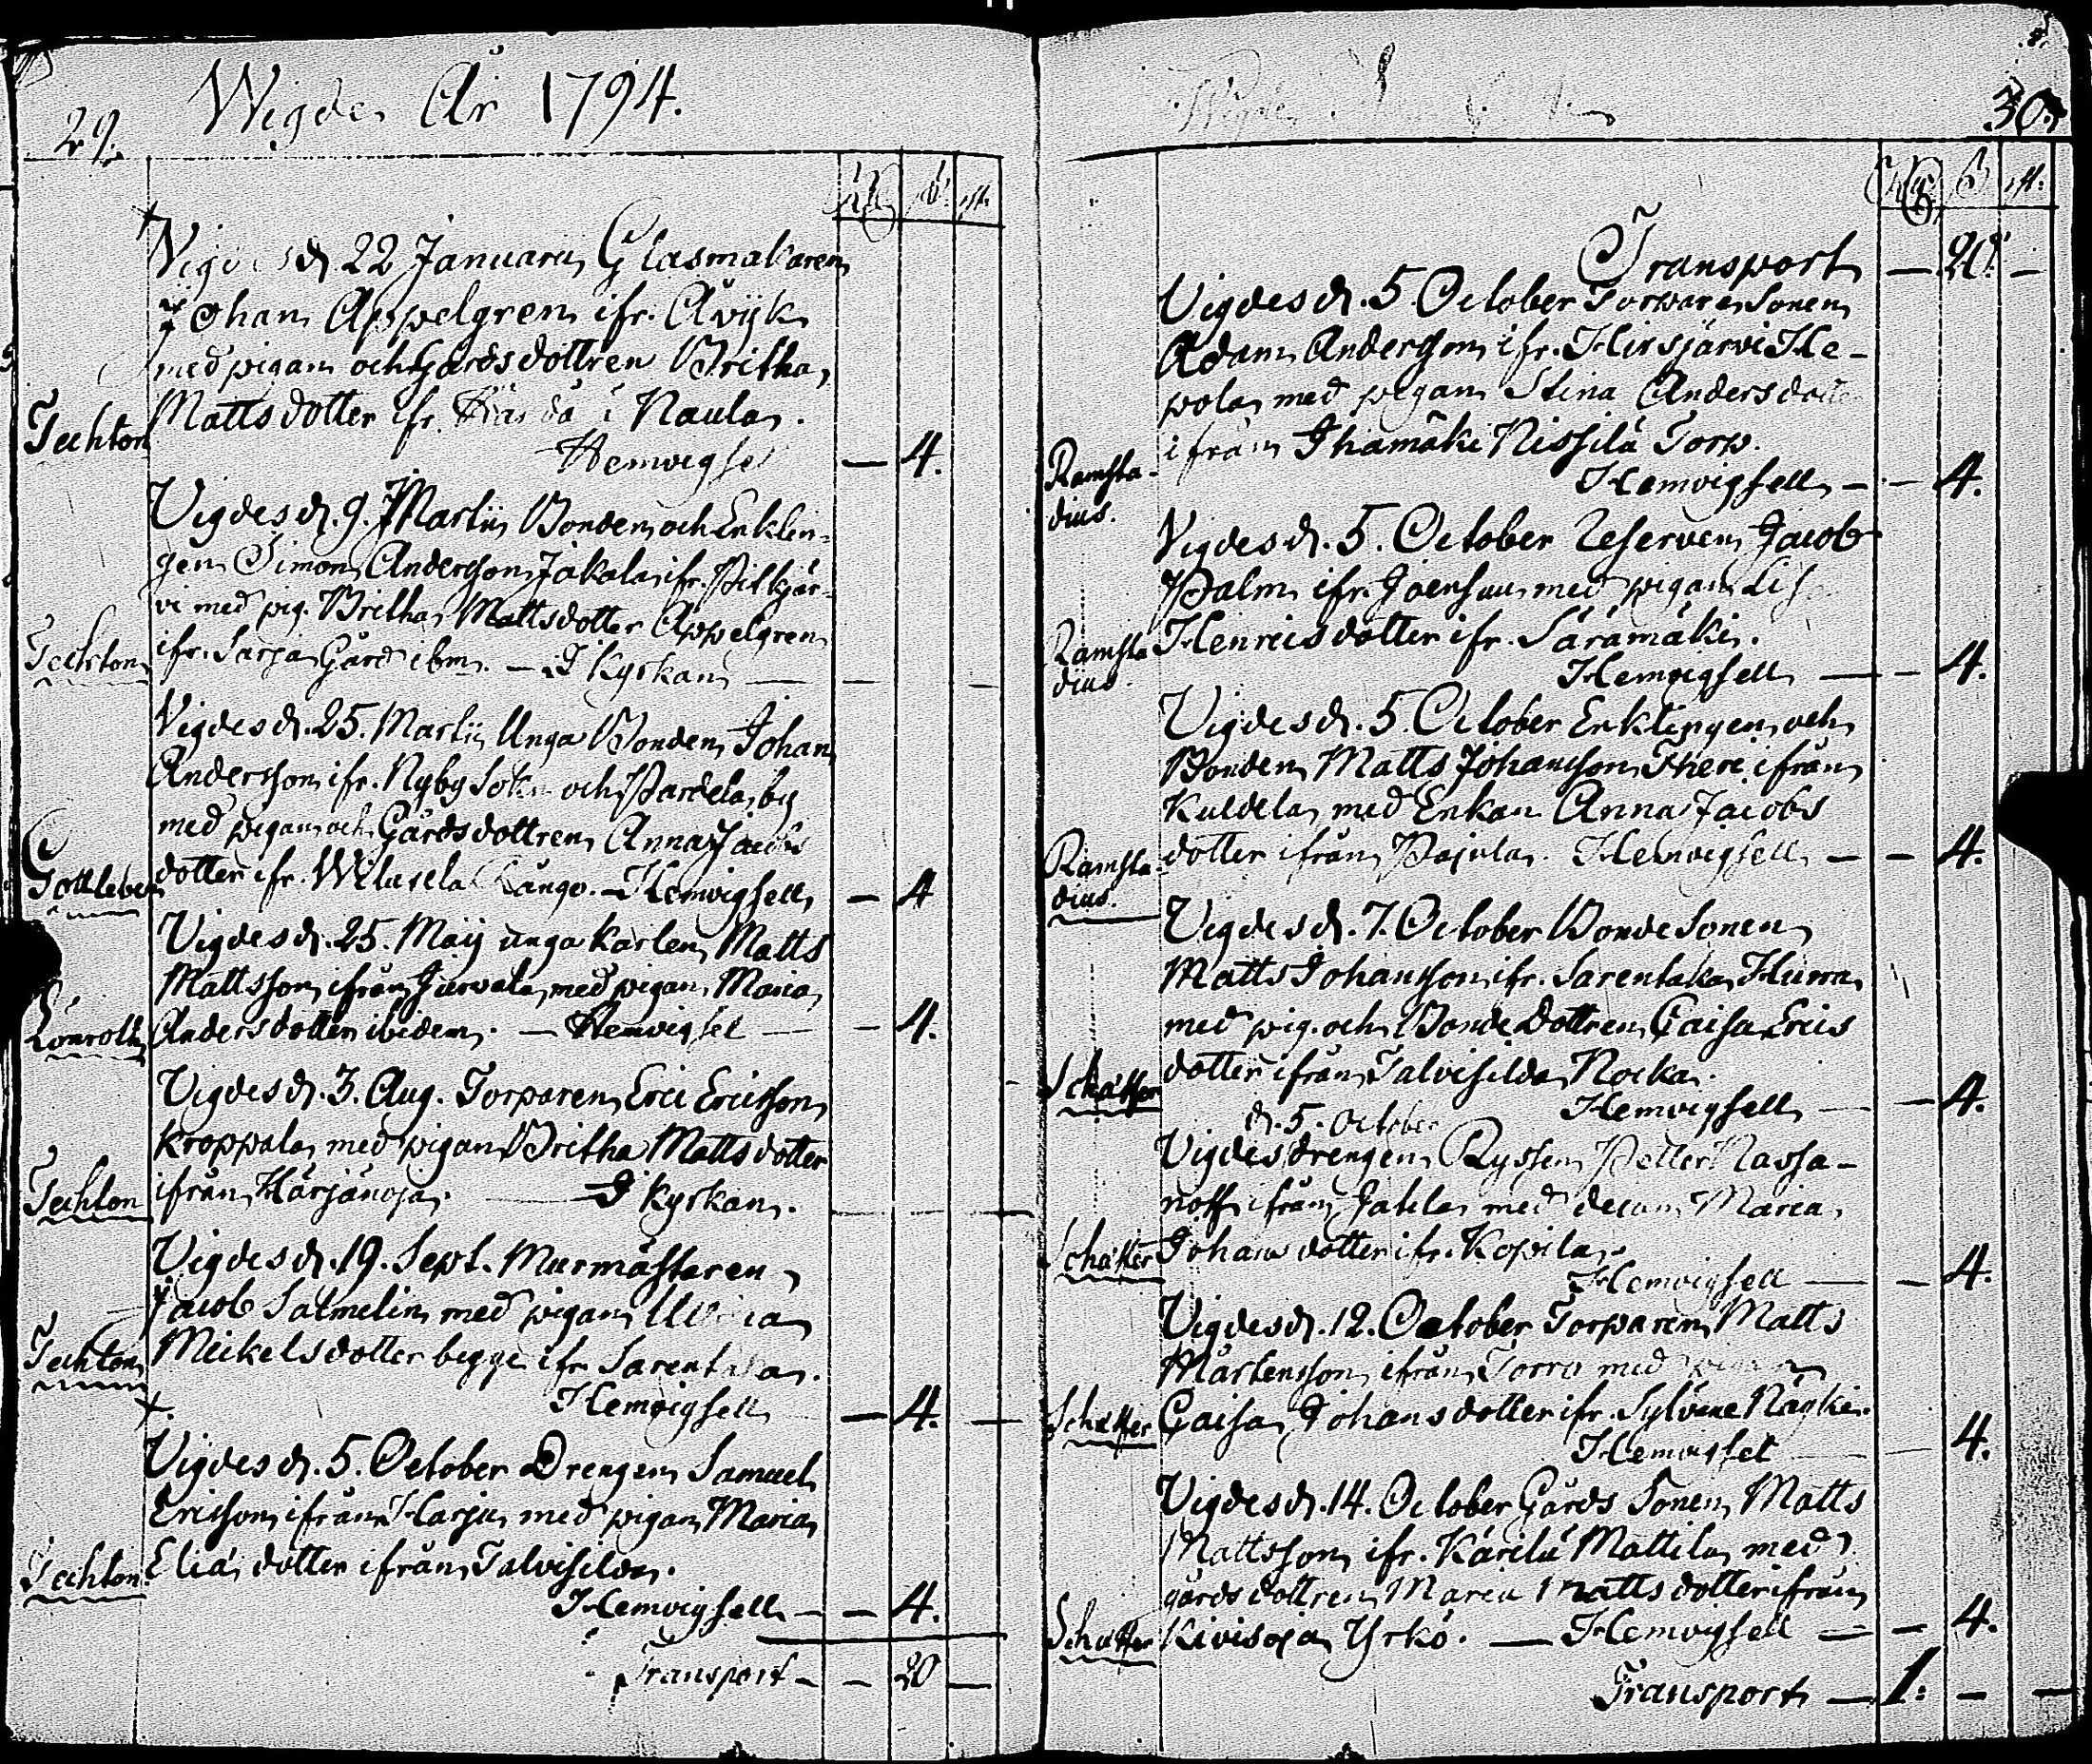 29.
Wigde År 1794.
Vigdes d. 22 Januarii Glasmakaren
Johan Appelgren ifr. Åvijk
med pigan och Gårdsdottren Britha
Mattsdotter ifr. i Naula.
Techton
Hemvigsel — 4.
Vigdes d. 9. Martii Bonden och Enklin-
gen Simon Andersson Jakola ifr. Pitkjär-
vi med pig. Britha Mattsdotter Appelgren
Techton ifr. Sarja Gård ibm. — I Kyrkan — —
Vigdes d. 25. Martii Unga Bonden Johan
Andersson ifr. Nyby Sokn och Pardela by
med pigan och Gårdsdottren Anna Jacobs
Gottleben dotter ifr. — Hemvigsell — 4
Vigdes d. 25. Maij unga Karlen Matts
Mattsson ifrån Jurvala med pigan Maria
Lönroth Andersdotter ibidem. — Hemvigsel — 4.
Vigdes d. 3. Aug. Torparen Eric Ericsson
Kroppala med pigan Britha Mattsdotter
Techton ifrån Härjänoja. — I Kyrkan.
Vigdes d. 19. Sept. Murmästaren
Jacob Salmelin med pigan
Techton Meickelsdotter begge ifr. Sarentaka.
Hemvigsell — 4. —
Vigdes d. 5. October Drengen Samuel
Ericsson ifrån Harju med pigan Maria
Techton Eliædotter ifrån Talvisilda.
Hemvigsell — — 4.
Transport — — 20 —
30.
Transport — 20. —
Vigdes d. 5. October Torpare Sonen
Adam Andersson ifr. Hirsjärvi He-
pola med pigan Stina Andersdotter
ifrån Ihamäki Nissilä Torp.
Ramsta-
dius.
Hemvigsell — — 4.
Vigdes d. 5. October Reserven Jacob
Palm ifr. Joensuu med pigan Lisa
Ramsta Henricsdotter ifr. Säramäki.
dius.
Hemvigsell — — 4.
Vigdes d. 5. October Enklingen och
Bonden Matts Johansson Theri ifrån
Kuldela med Enkan Anna Jacobs
Ramsta- dotter ifrån Pajula. Hemvigsell — — 4.
dius.
Vigdes d. 7. October Bonde Sonen
Matts Johansson ifr. Sarentaka Hurra
med pig. och Bonde Dottren Caisa Erics
Schäffer dotter ifrån Talvisilda Nocka.
Hemvigsell — — 4.
d. 5. October
Vigdes drengen Ryssen Petter Nassa-
noff ifrån med Maria
Schäffer Johansdotter ifr. Kopila.
Hemvigsell — — 4.
Vigdes d. 12. October Torparen Matts
Mårtensson ifrån Torro med pigan
Schäffer Caisa Johansdotter ifr. Sylvene Nägki.
Hemvigsel 4.
Vigdes d. 14. October Gårds Sonen Matts
Mattsson ifr. Kärilä Mattila med
gårdsdottren Maria Mattsdotter ifrån
Schäffer Kivisoja Yrkö. — Hemvigsell — — 4.
Transport — 1. — —